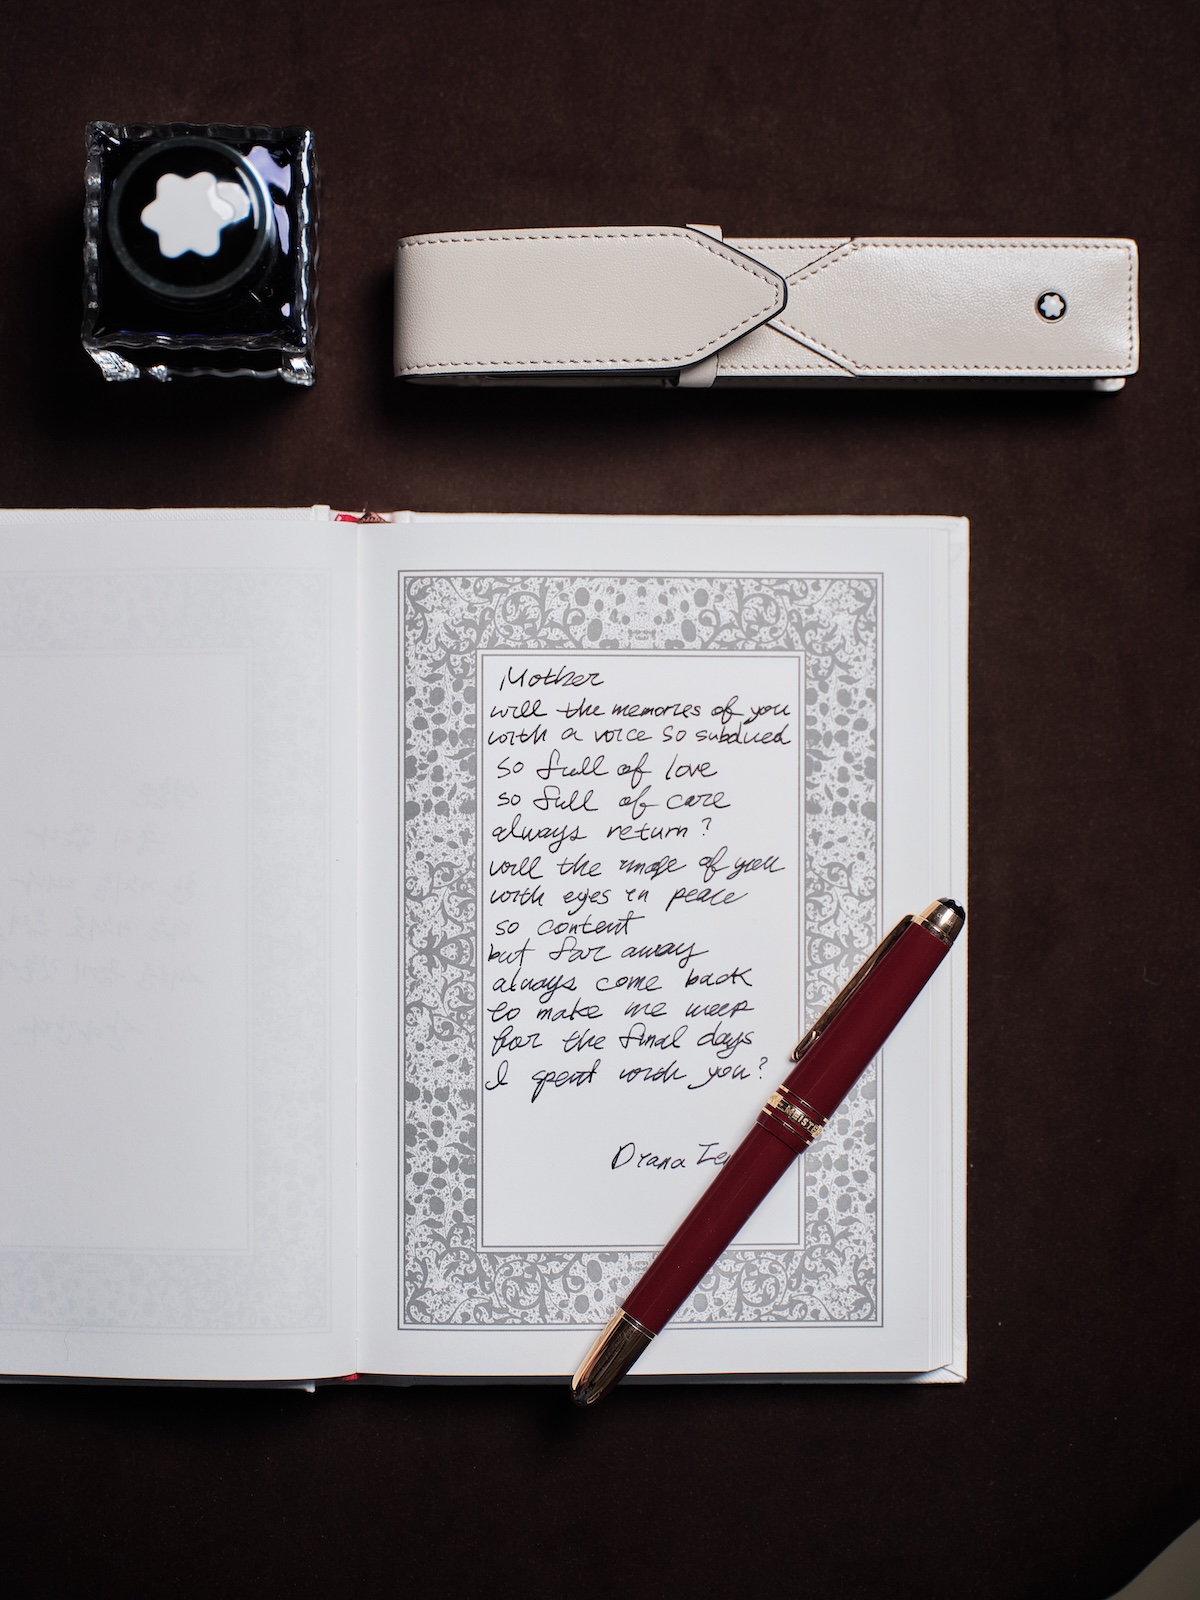 Mother
will the memories of you
with a voice so subdued
so full of love
so full of care
always return?
will the image of you
with eyes in peace
so content
but far away
always come back
to make me weep
for the final days
I spent with you?
Diana
MEISTE